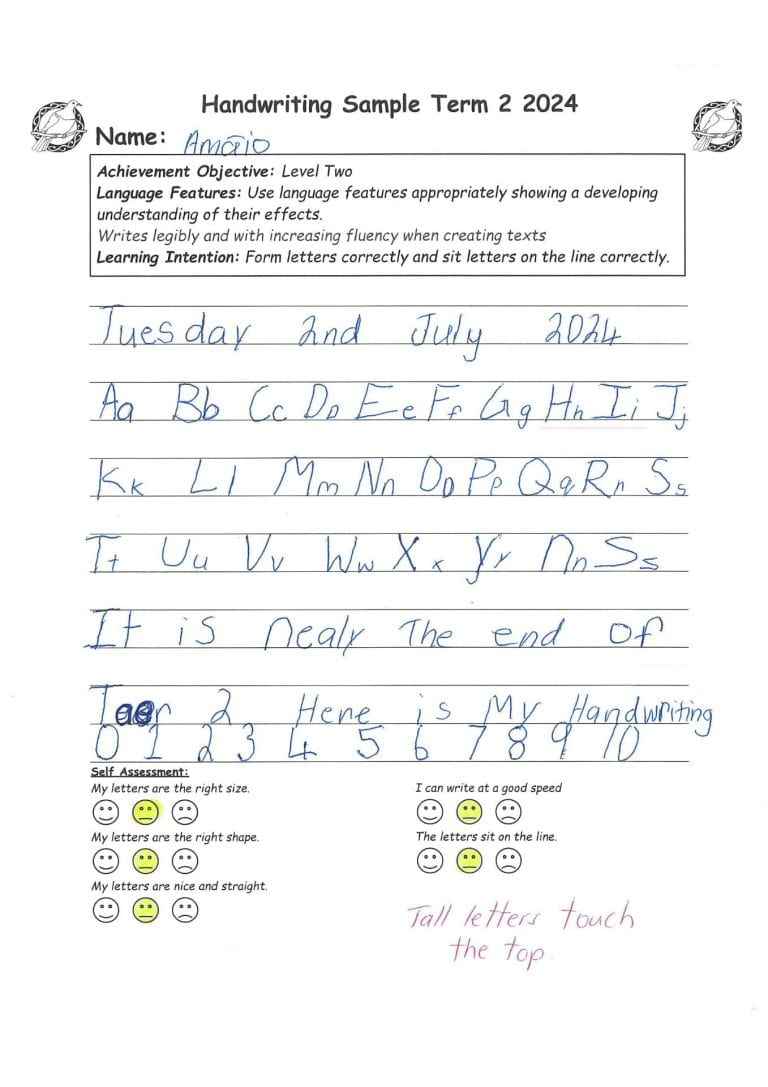 Handwriting Sample Term 2 2024
Name: Amārio
Achievement Objective: Level Two
Language Features: Use language features appropriately showing a developing
understanding of their effects.
Writes legibly and with increasing fluency when creating texts
Learning Intention: Form letters correctly and sit letters on the line correctly.
Tuesday 2nd July 2024
Aa Bb Cc Dd Ee Ff Gg Hh Ii Jj
Kk Ll Mm Nn Oo Pp Qq Rr Ss
Tt Uu Vv Ww Xx Yy Nn Ss
It is nealy The end of
2 Here is My Handwriting
0 1 2 3 4 5 6 7 8 9 10
Self Assessment:
My letters are the right size.
I can write at a good speed
My letters are the right shape.
The letters sit on the line.
My letters are nice and straight.
Tall letters touch
the top.